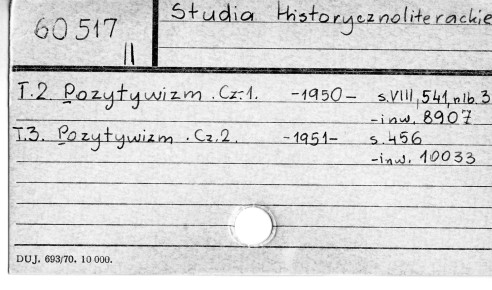 60517
II
Studia Historycznoliterackie
T.2 Pozytywizm. Cz. 1. -1950- s. VIII, 541, nlb. 3
-inw. 8907
T.3. Pozytywizm. Cz. 2. -1951- s. 456
-inw. 10033
DUJ. 693/70. 10 000.